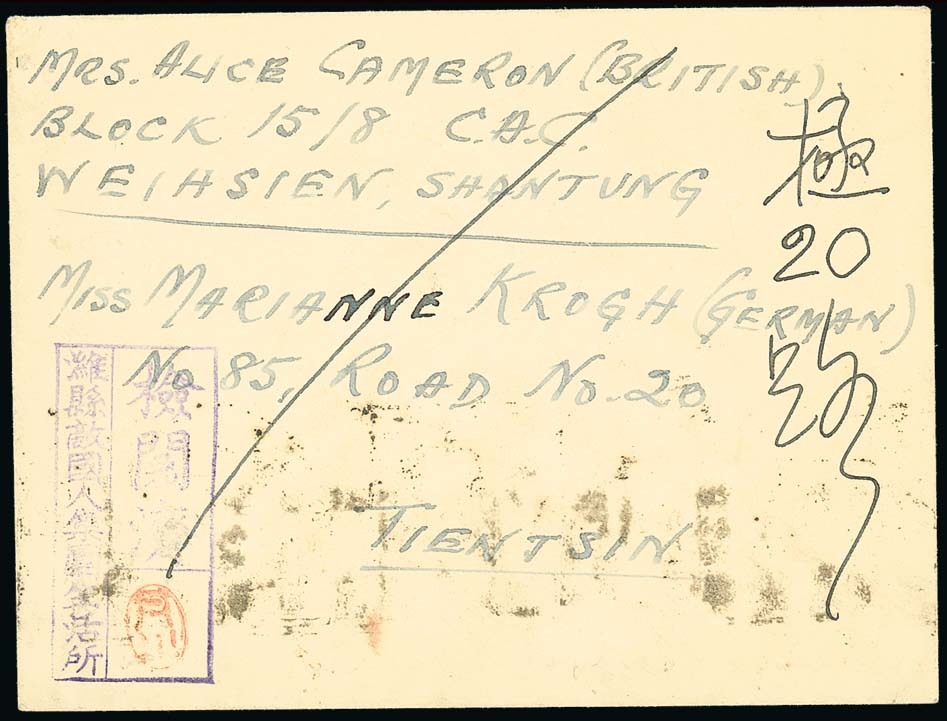 MRS. ALICE CAMERON (BRITISH)
BLOCK 15/8 C.A.C.
WEIHSIEN, SHANTUNG
MISS MARIANNE KROGH (GERMAN)
No 85, ROAD No. 20
TIENTSIN
極
20
號
濰縣敵國人集團生活所
檢閲濟